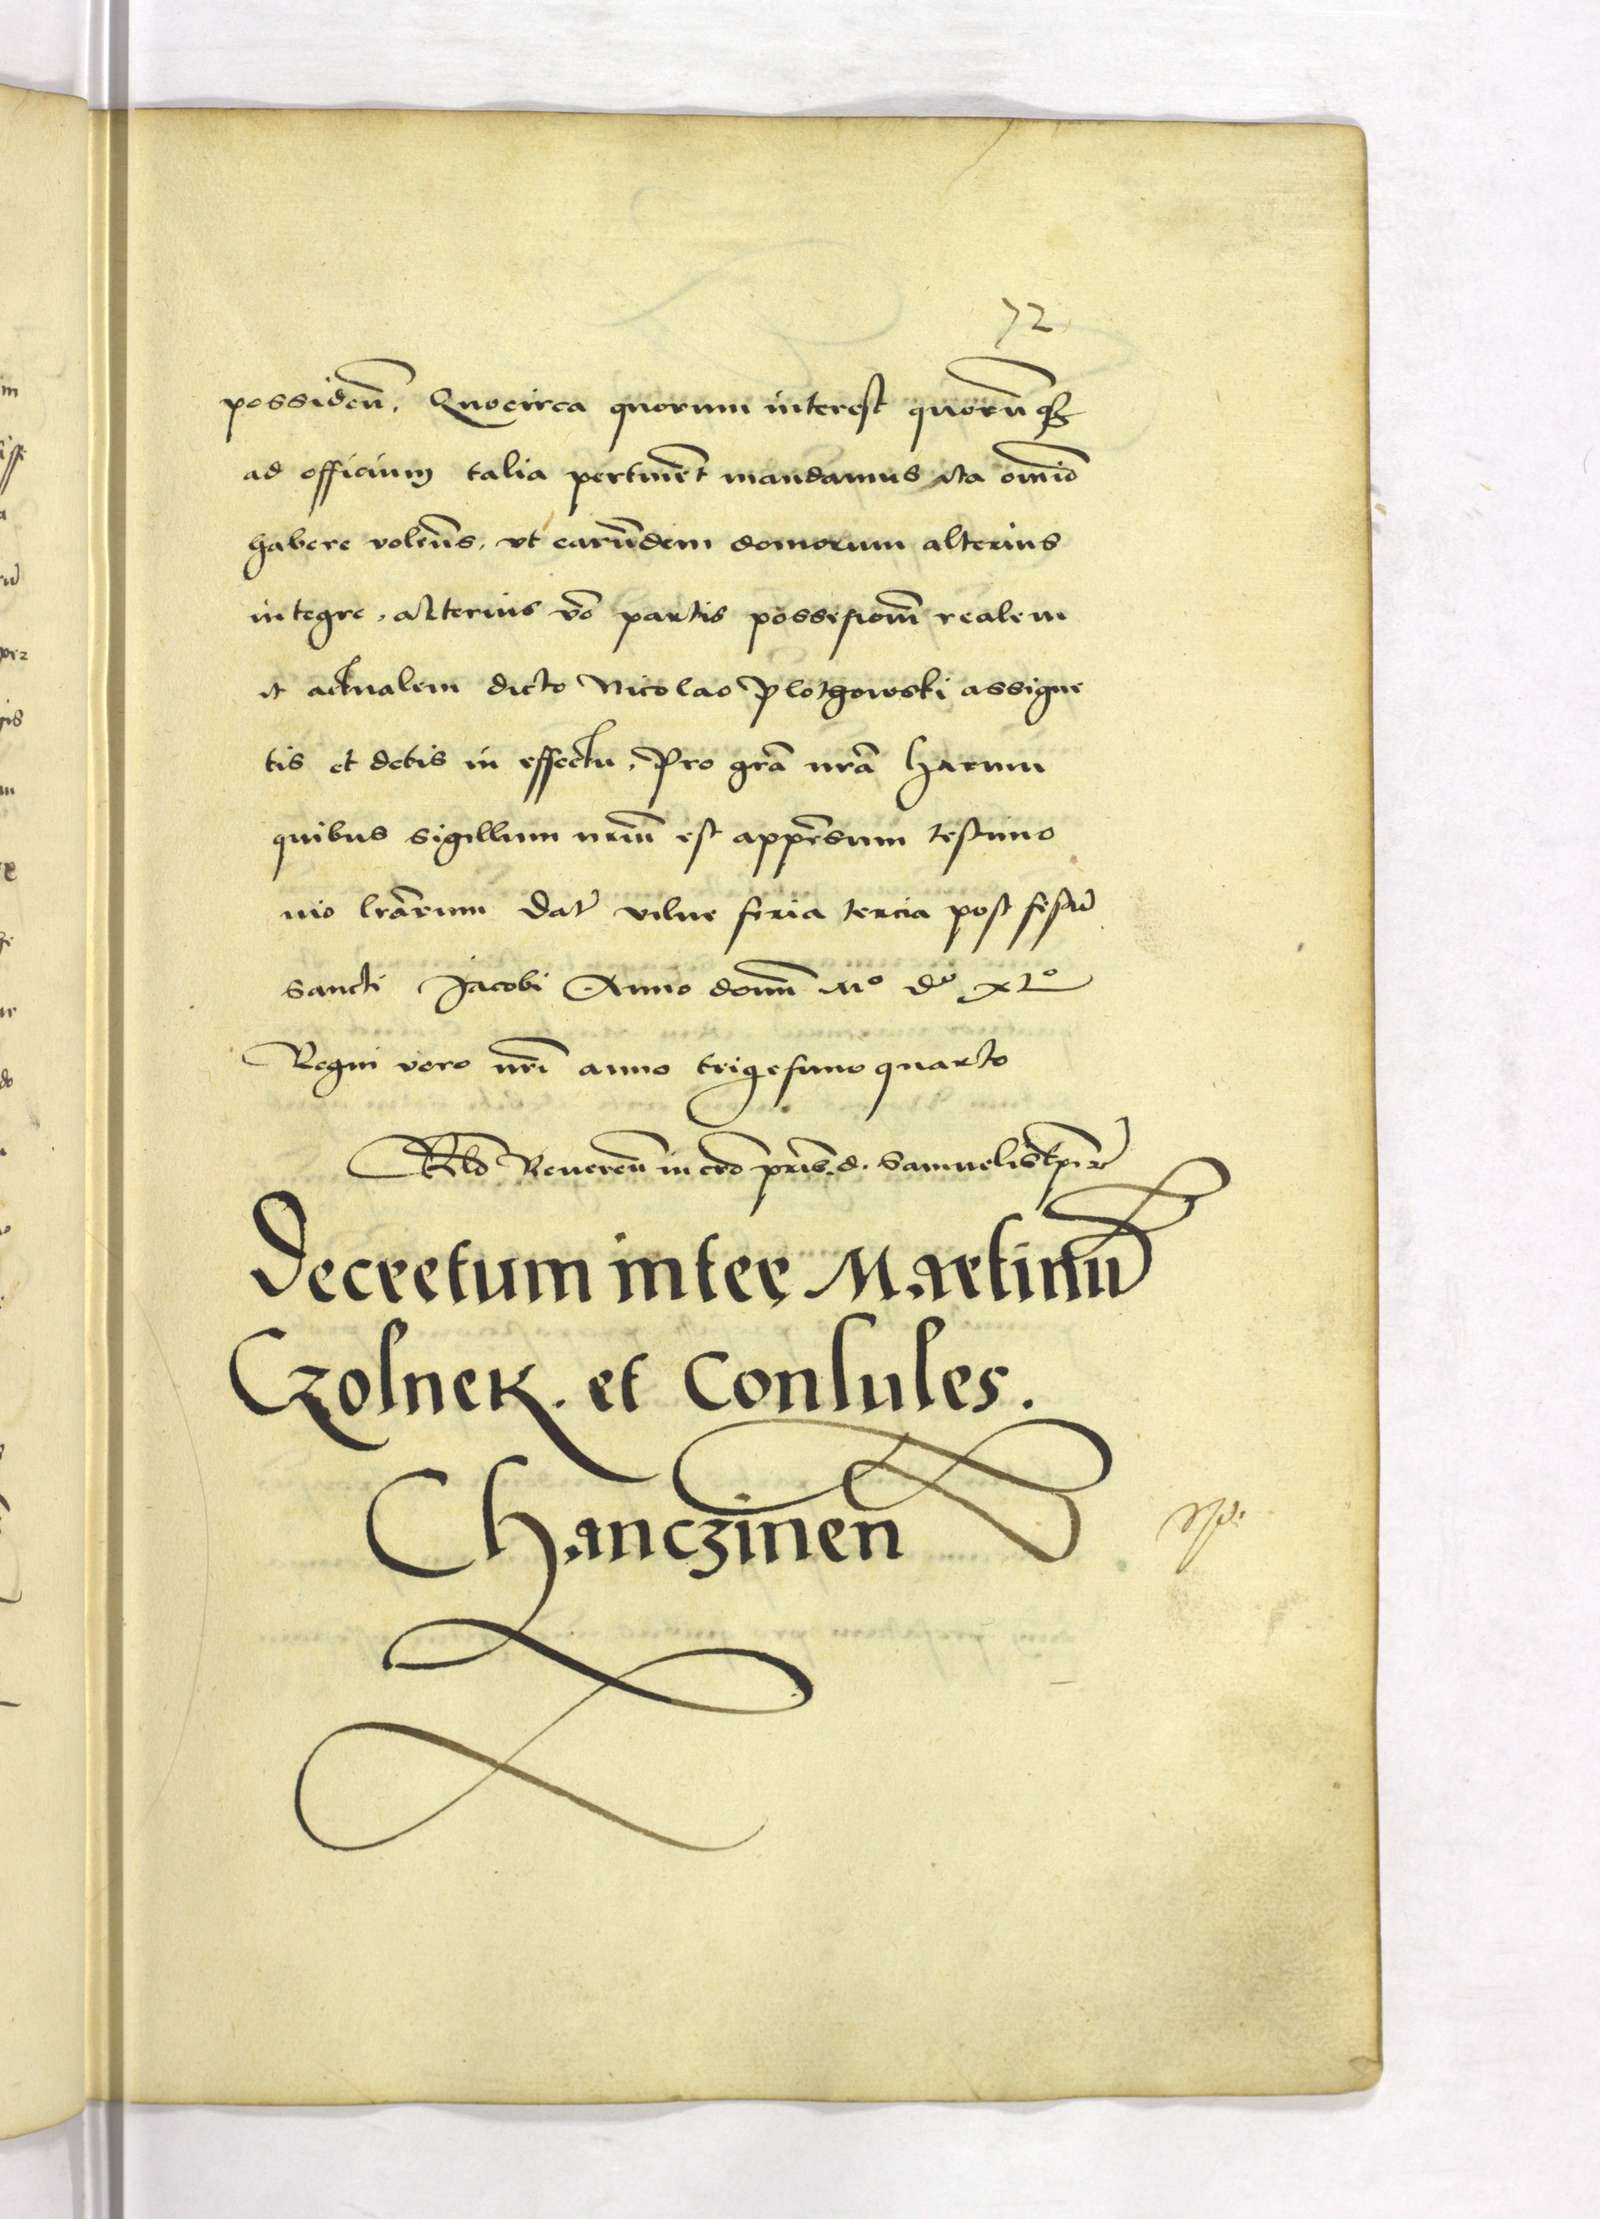 72
possiden̄. Quocirca quorum interest quorū qȝ
ad officium talia pertinēt mandamus ita om̄io
habere volen̄s, vt earūdem domorum alterius
integre, alterius v̄o partis possesionē realem
et actualem dicto Nicolao Plothowski assigne
tis et detis in effectu, Pro grā nrā Harum
quibus sigillum nrūm est appensum testimo
nio lrārum Dat̄ vilne feria tercia post festū
Sancti Jacobi Anno domī Mo do xlo
Regni vero nrī anno trigesimo quarto
Rlō Reueren̄ in cro pris d. Samuelis
Decretum inter Martinū
Czolnek. et Consules.
Chanczinen